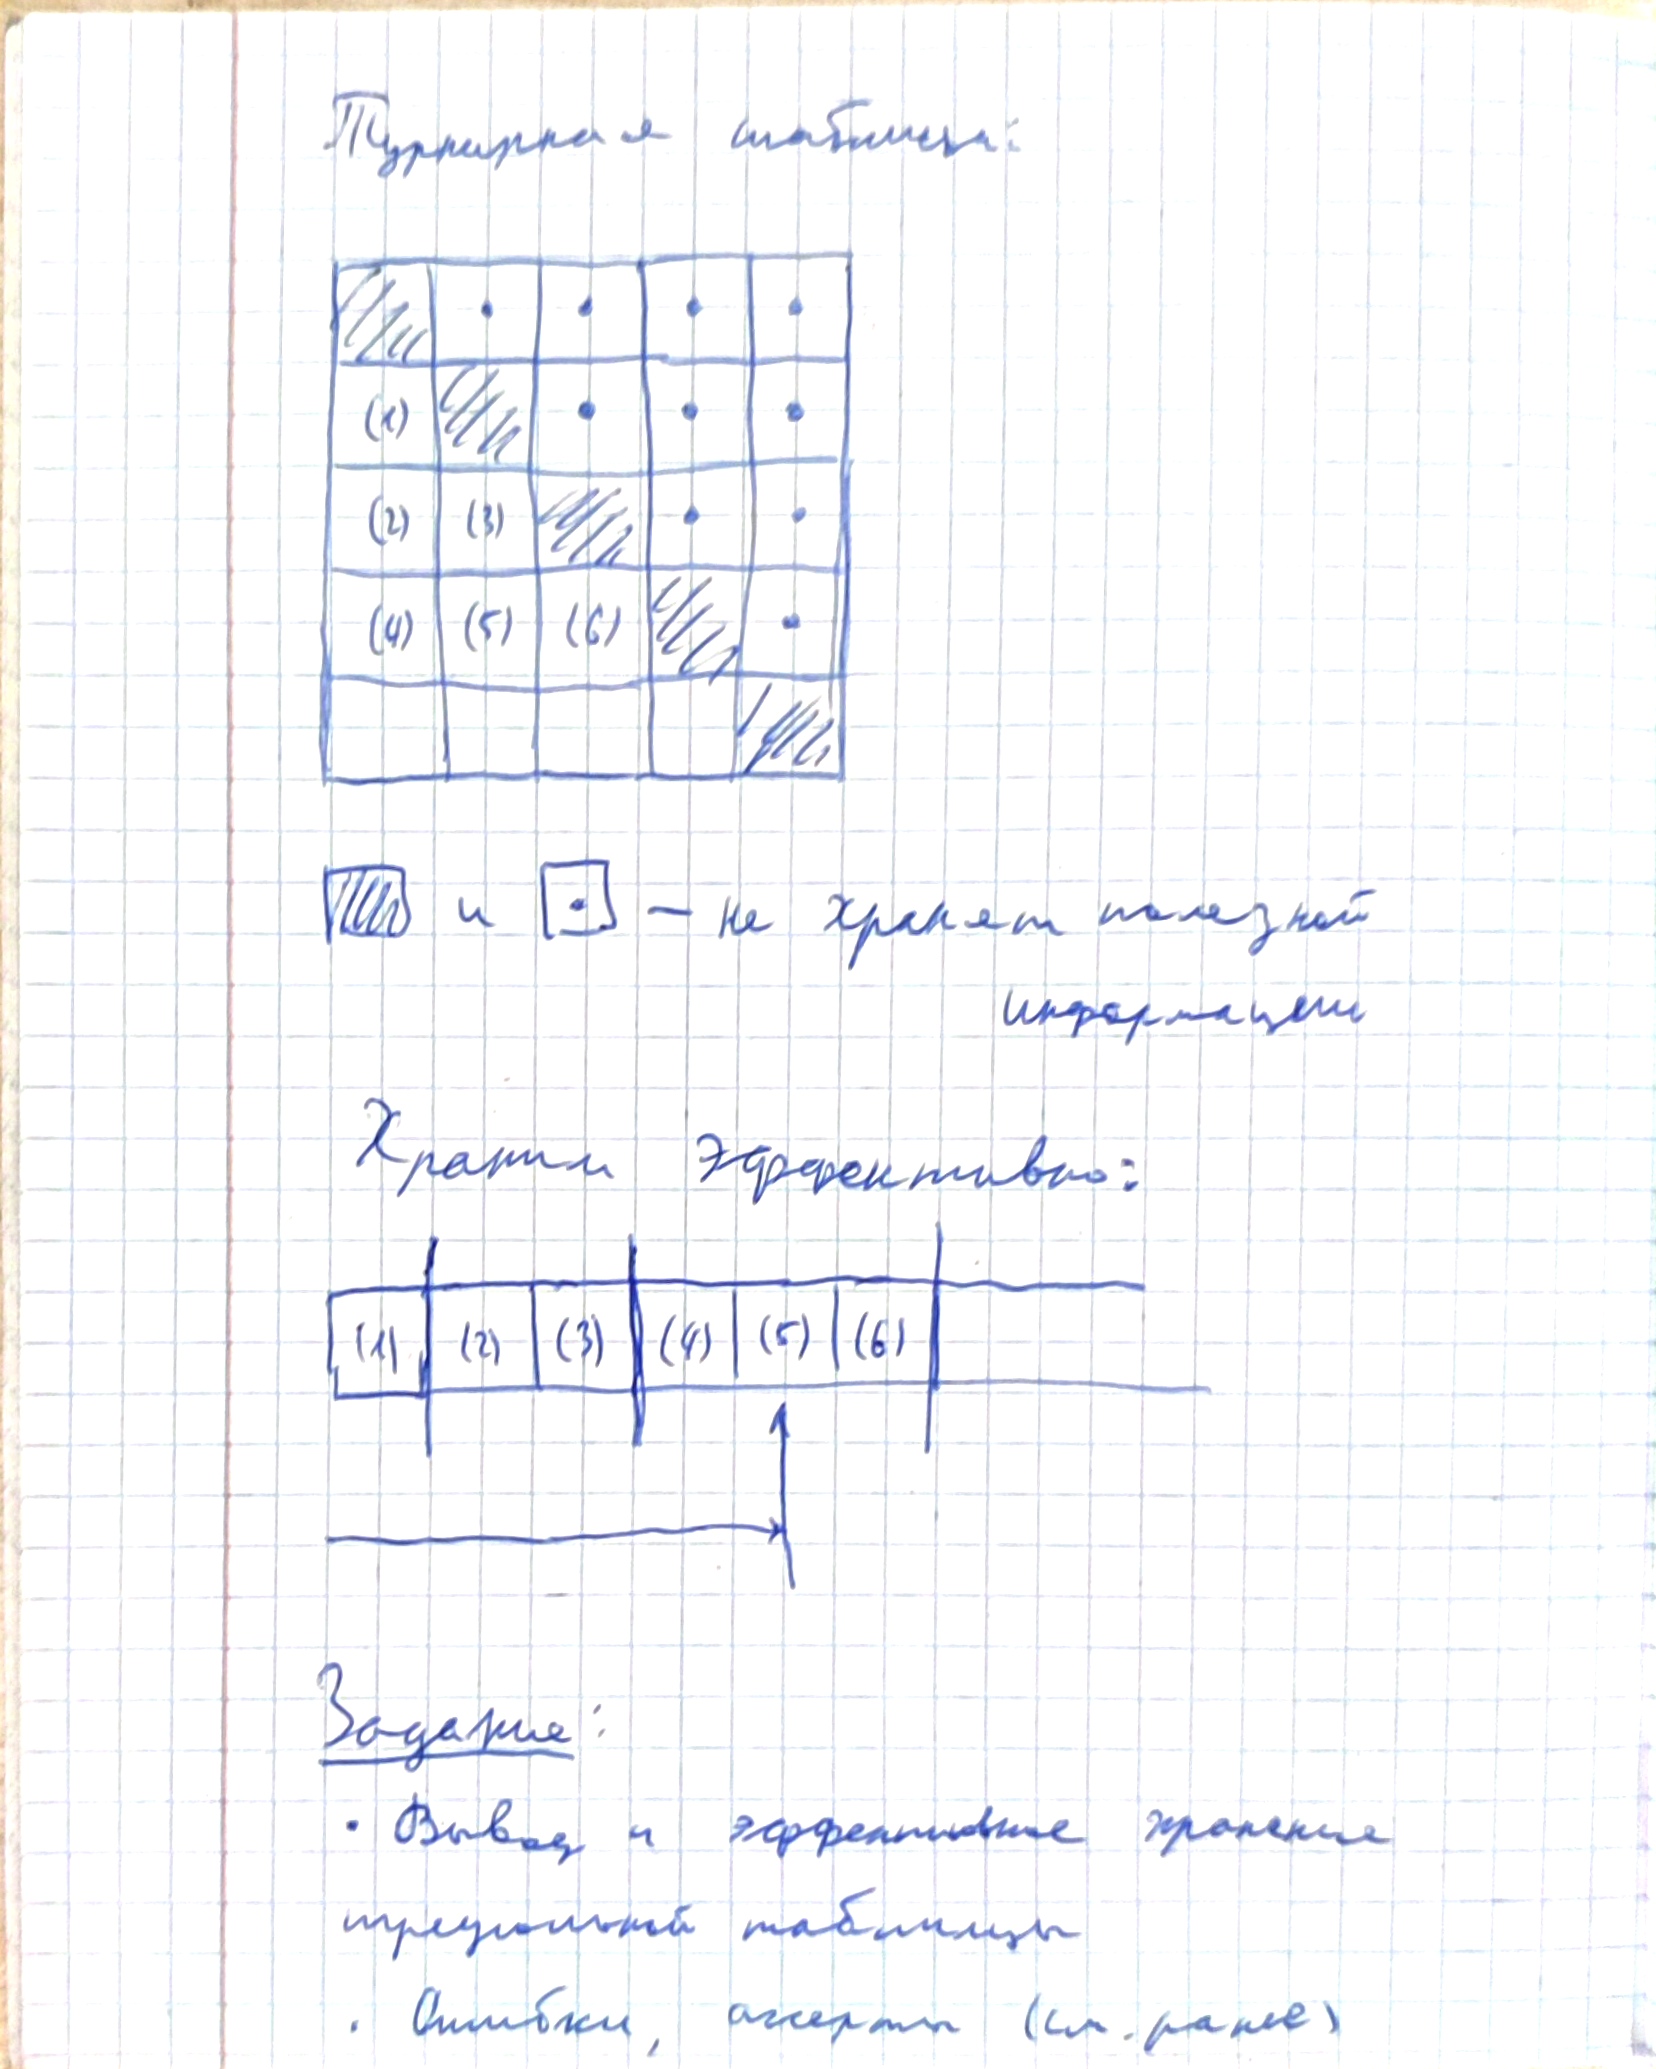 Турнирная таблица:
(1)
(2) (3)
(4) (5) (6)
и — не хранят полезной
информации
Храним эффективно:
(1) (2) (3) (4) (5) (6)
Задание:
· Вывод и эффективное хранение
треугольной таблицы
· Ошибки, ассерты (см. ранее)